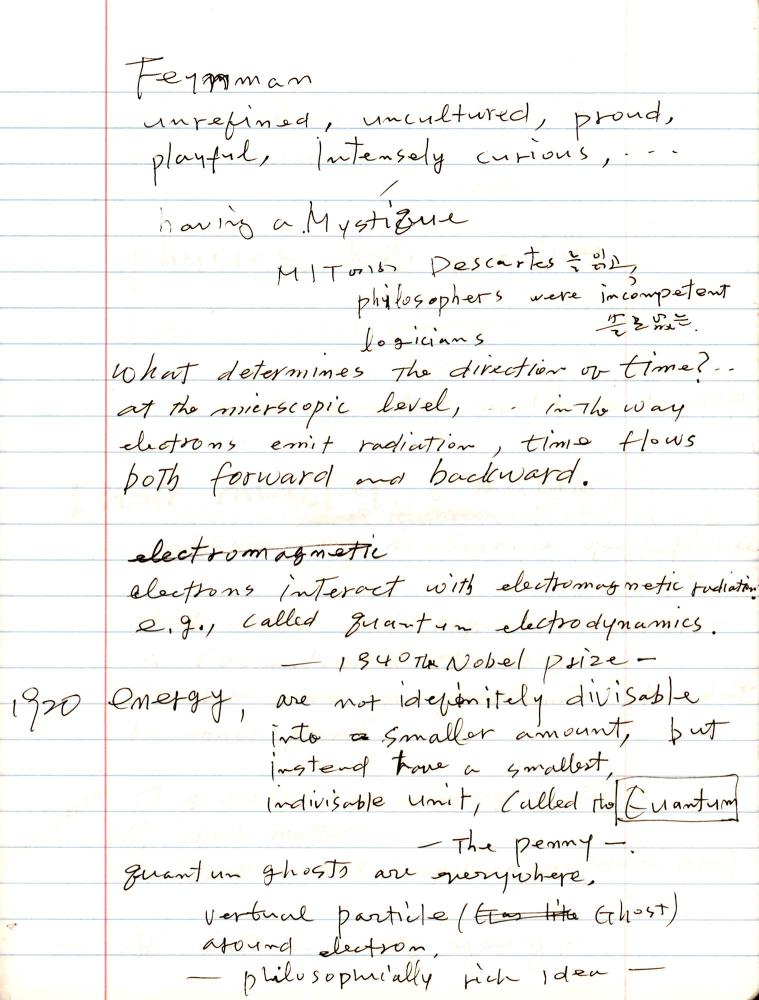 Feynman
unrefined, uncultured, proud,
playful, Intensely curious, ...
having a Mystique
MIT에서 Descartes를 읽고,
philosophers were incompetent
logicians
what determines the direction of time? ..
at the mierscopic level, .. in the way
electrons emit radiation, time flows
both forward and backward.
electromagnetic
electrons interact with electromagnetic radiation
e.g., called quantum electrodynamics.
— 1940 The Nobel prize —
1920 energy, are not idefinitely divisable
into a smaller amount, but
instend have a smallest,
indivisable unit, called the Quantum
— The penny —.
quantum ghosts are everywhere.
vertual particle ( Ghost)
around electron.
— philosophically rich idea —